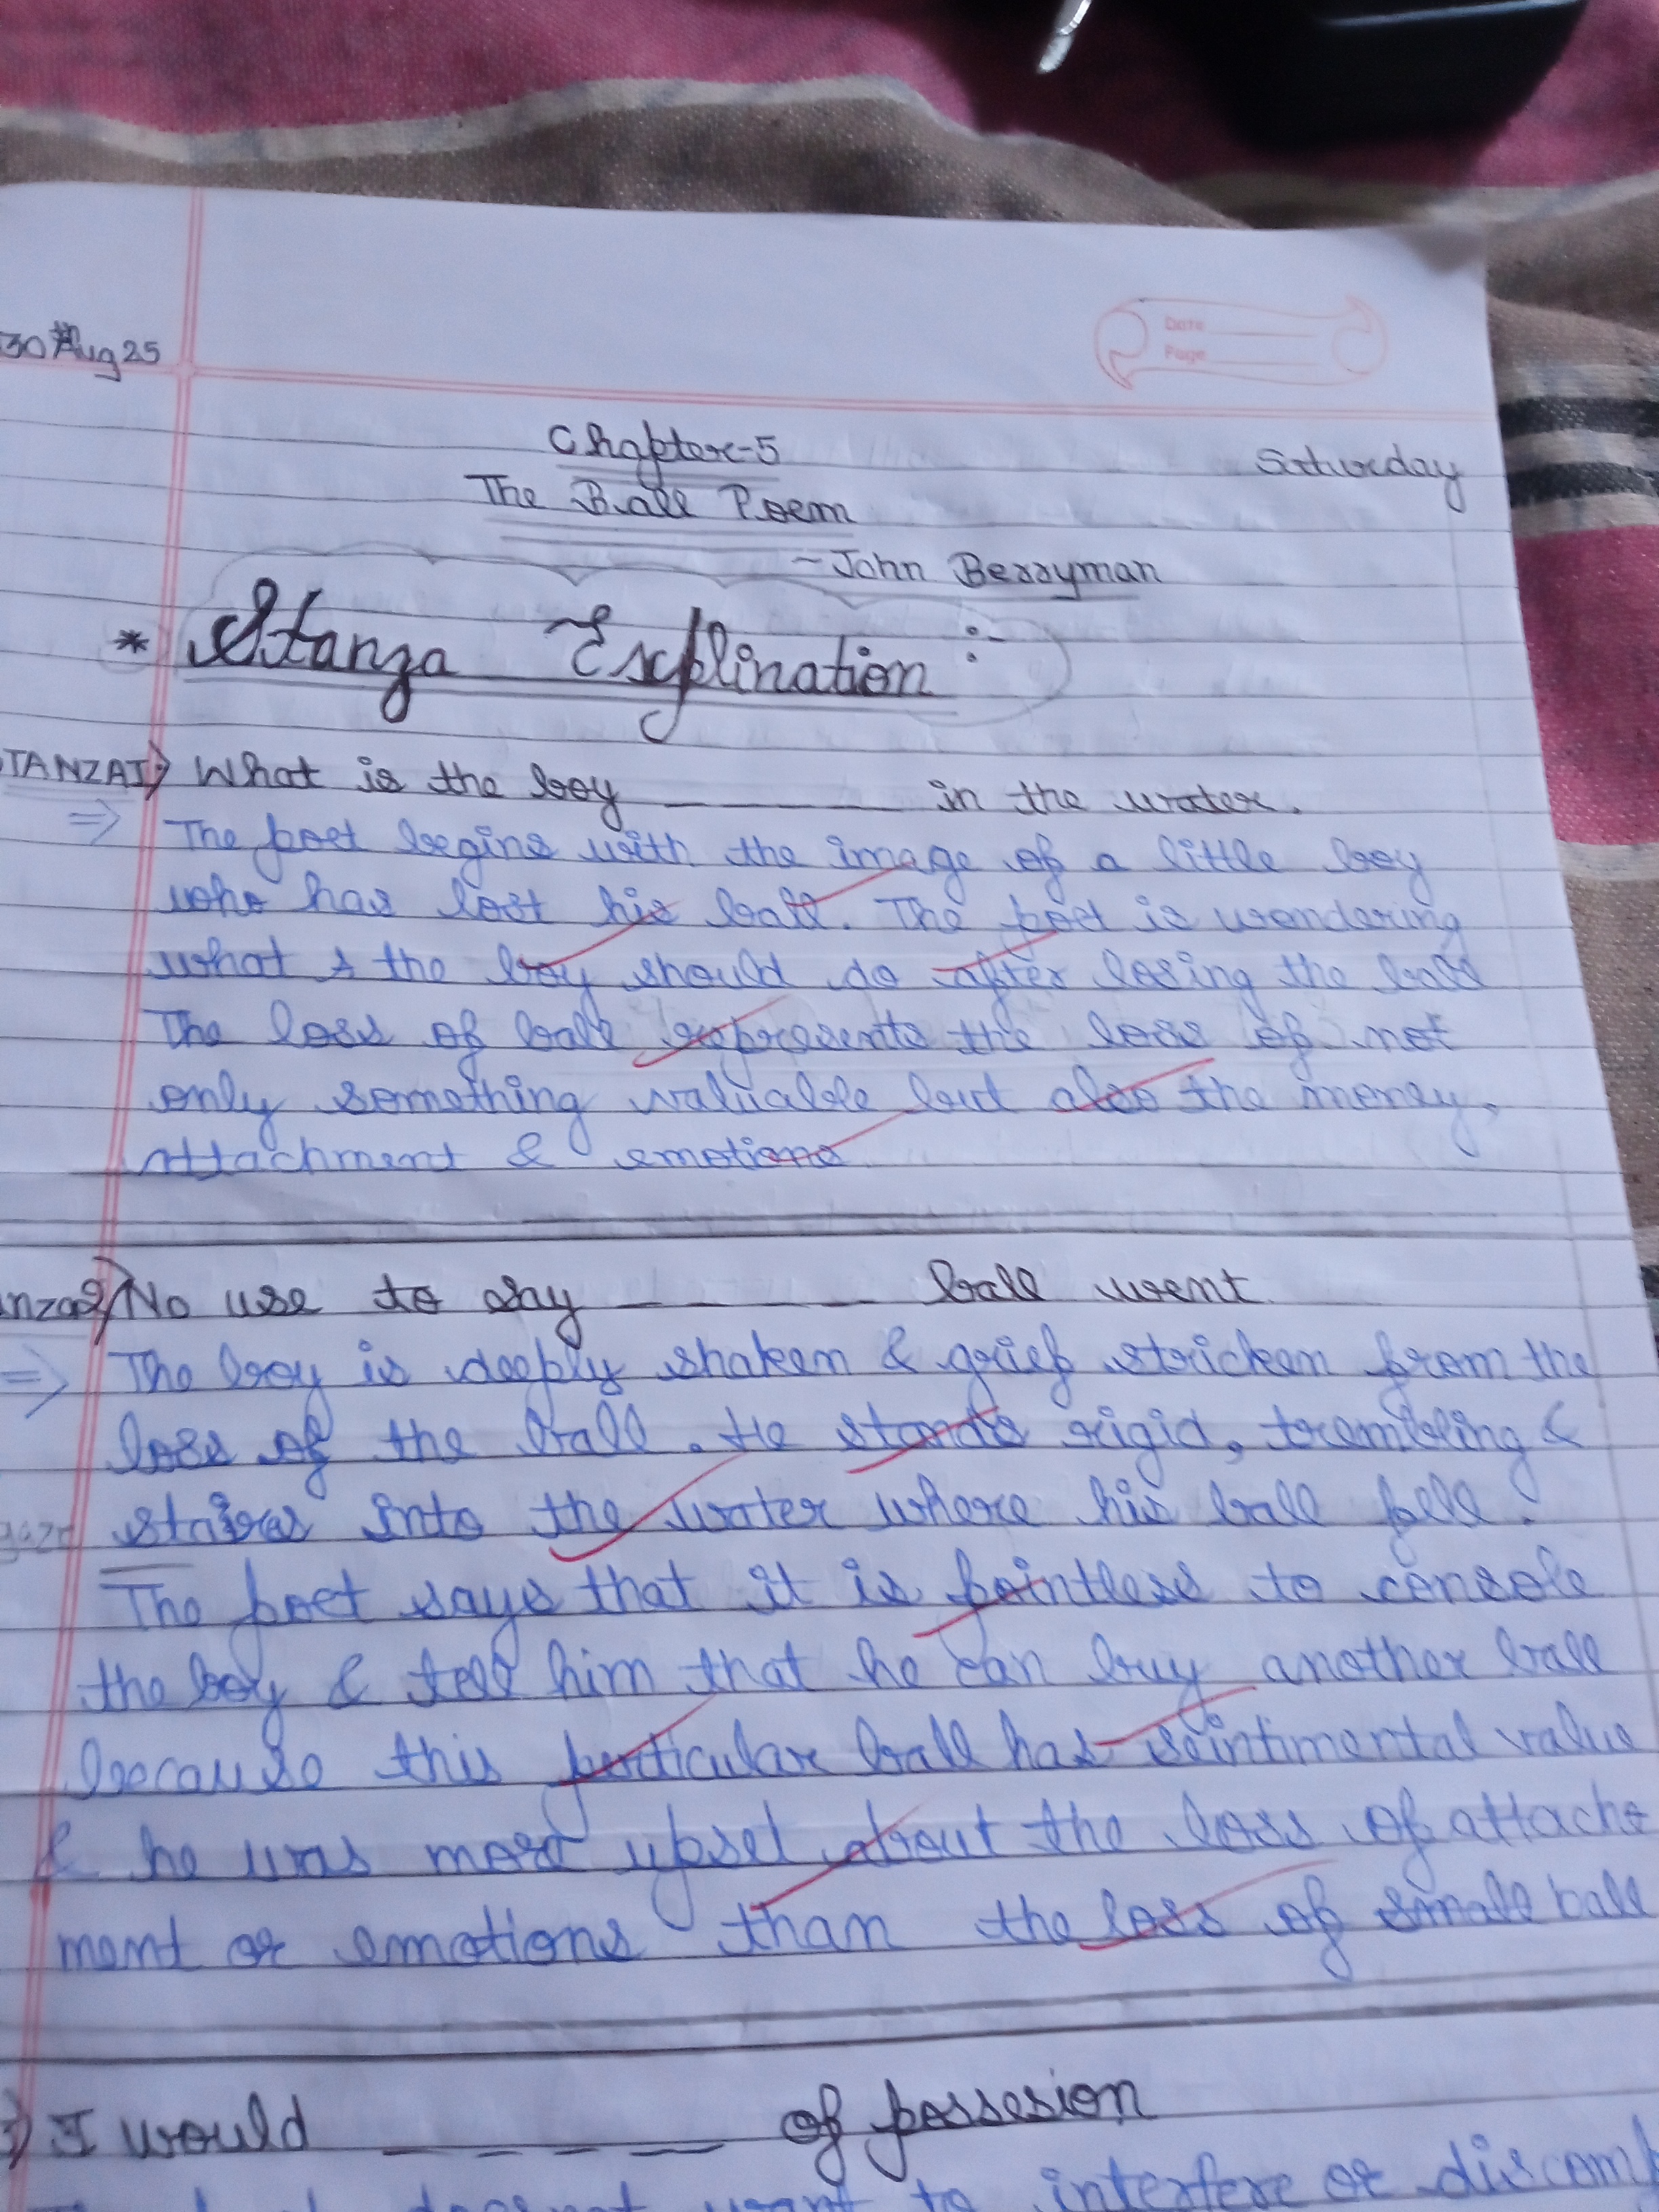 30th Aug 25
Date
Page
Chapter-5
Saturday
The Ball Poem
~John Berryman
* Stanza Explination :-
TANZA1) What is the boy _ _ _ _ _ in the water.
⇒ The poet begins with the image of a little boy
who has lost his ball. The poet is wondering
what the boy should do after losing the ball
The loss of ball represents the loss of not
only something valuable but also the money,
attachment & emotions
nza2) No use to say _ _ _ _ _ ball went
⇒ The boy is deeply shaken & grief stricken from the
loss of the ball. He stands rigid, trembling &
staires into the water where his ball fell.
gaze
The poet says that it is pointless to console
the boy & tell him that he can buy another ball
because this perticular ball has seintimental value
& he was more upset about the loss of attach
ment or emotions than the loss of small ball
) I would _ _ _ _ _ of possesion
want to interfere or